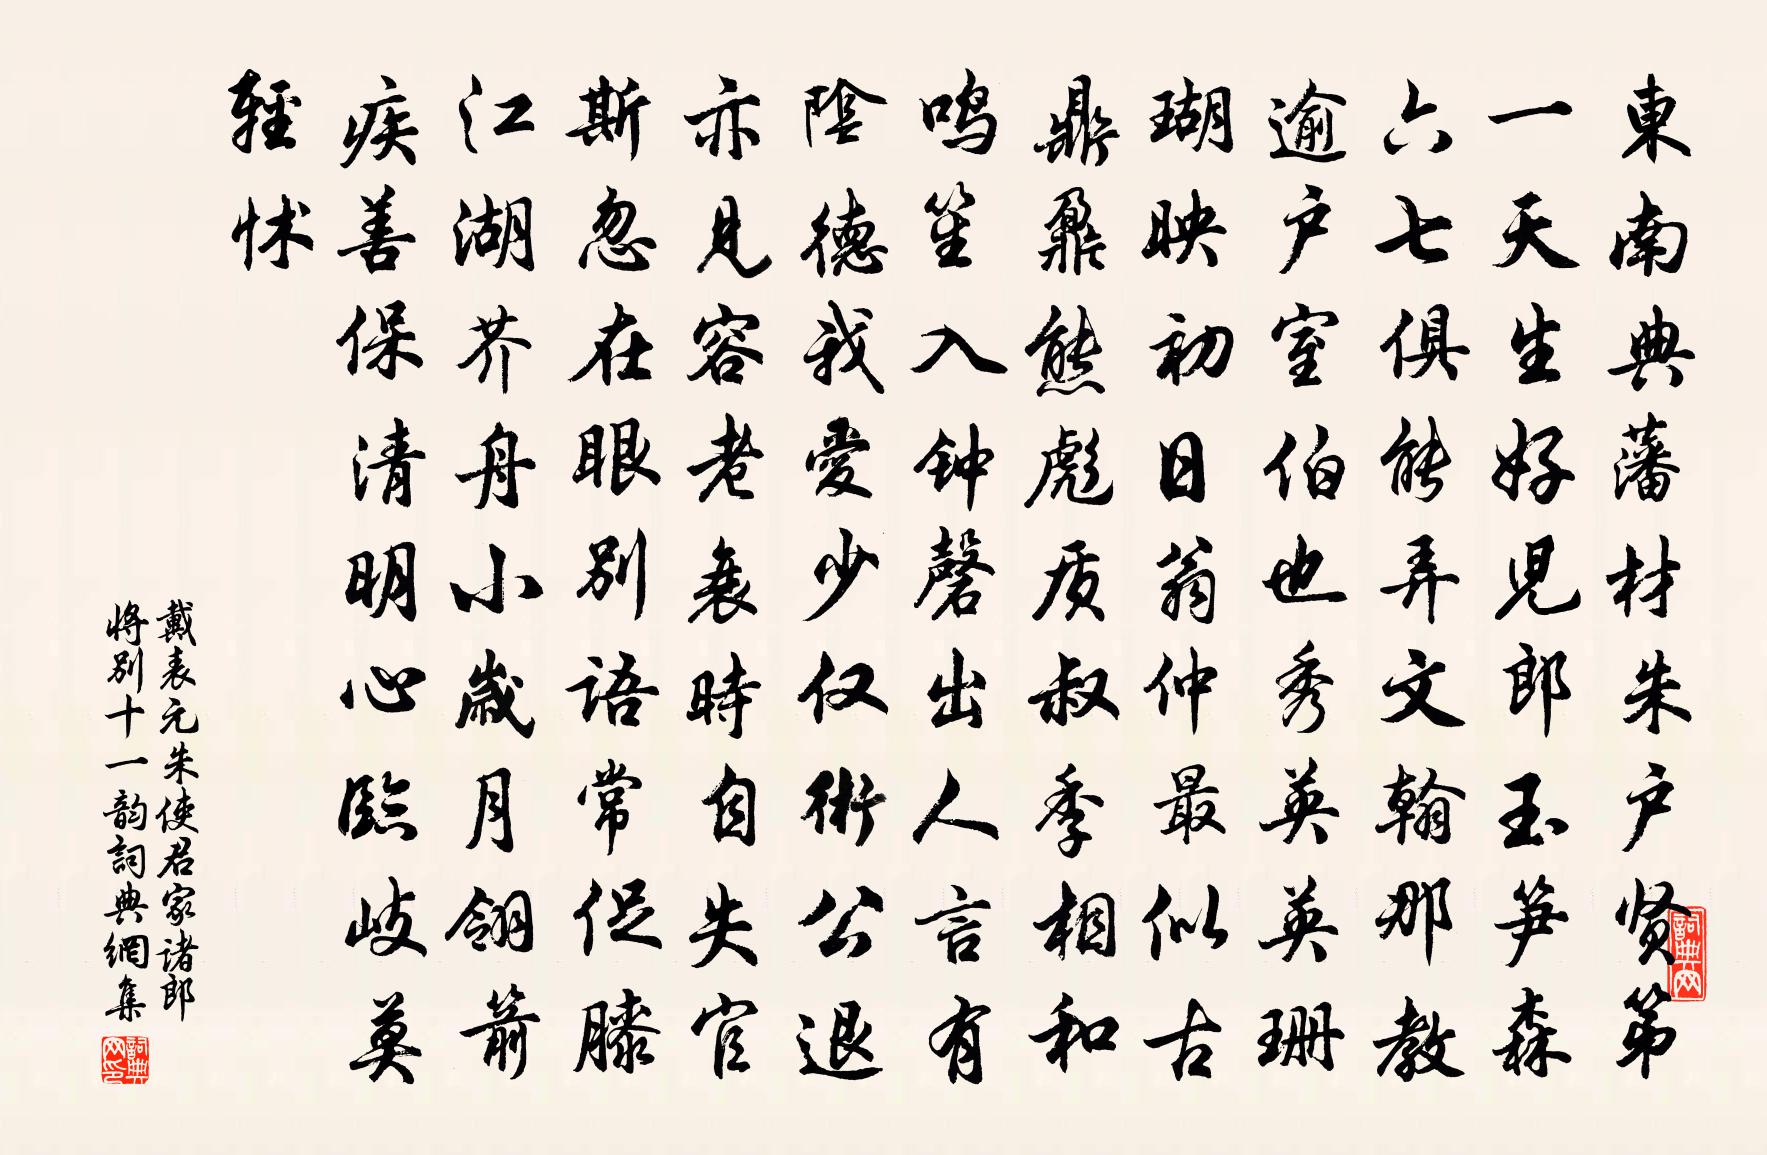 東南典藩材朱户贤第
一天生好児郎玉笋森
六七俱能弄文翰那教
逾户室伯也秀英英珊
瑚映初日翁仲最似古
鼎鼐熊彪质叔季相和
鸣笙入钟磬出人言有
陰德我愛少仅術公退
亦見容老衰時自失官
斯忽在眼別語常促膝
江湖芥舟小歲月翎箭
疾善保清明心臨岐莫
輕怵
戴表元朱使君家诸郎
将别十一韵詞典網集
詞典网
詞典网印